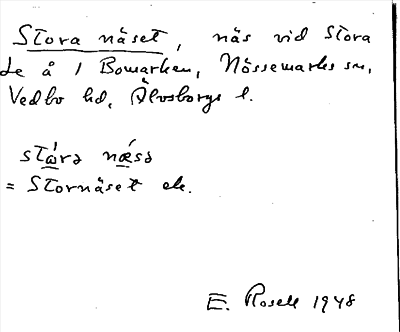 Stora näset, näs vid Stora
Le å / Bomarken, Nössemarks sn,
Vedbo hd, Älvsborgs l.
stώrə nǽsə
= Stornäset ek.
E. Rosell 1948